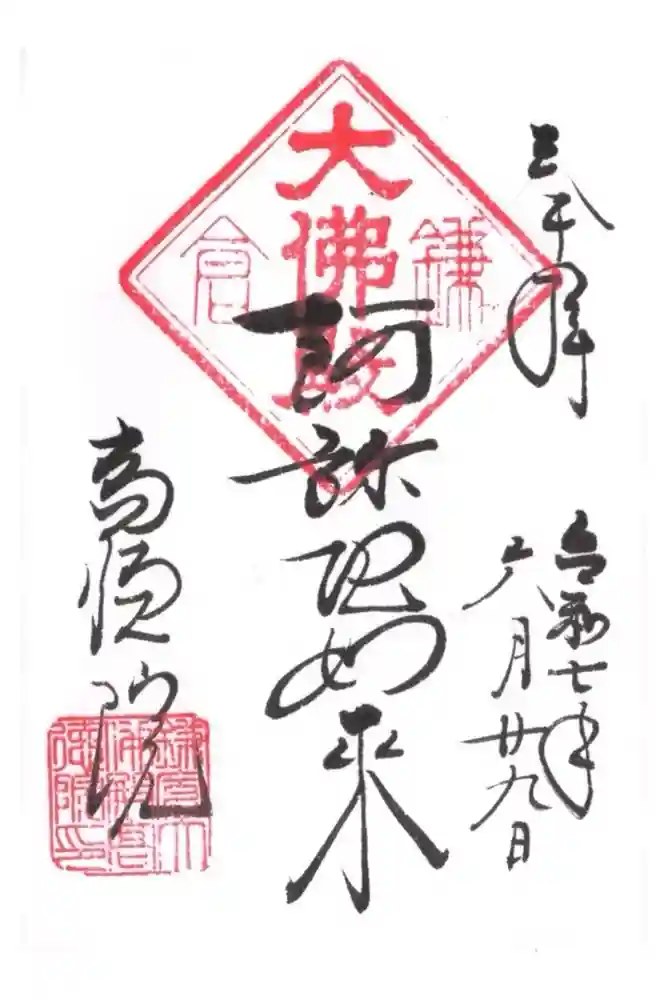 奉拝
令和七年
六月廿九日
鎌倉
大佛殿
阿弥陀如来
高徳院